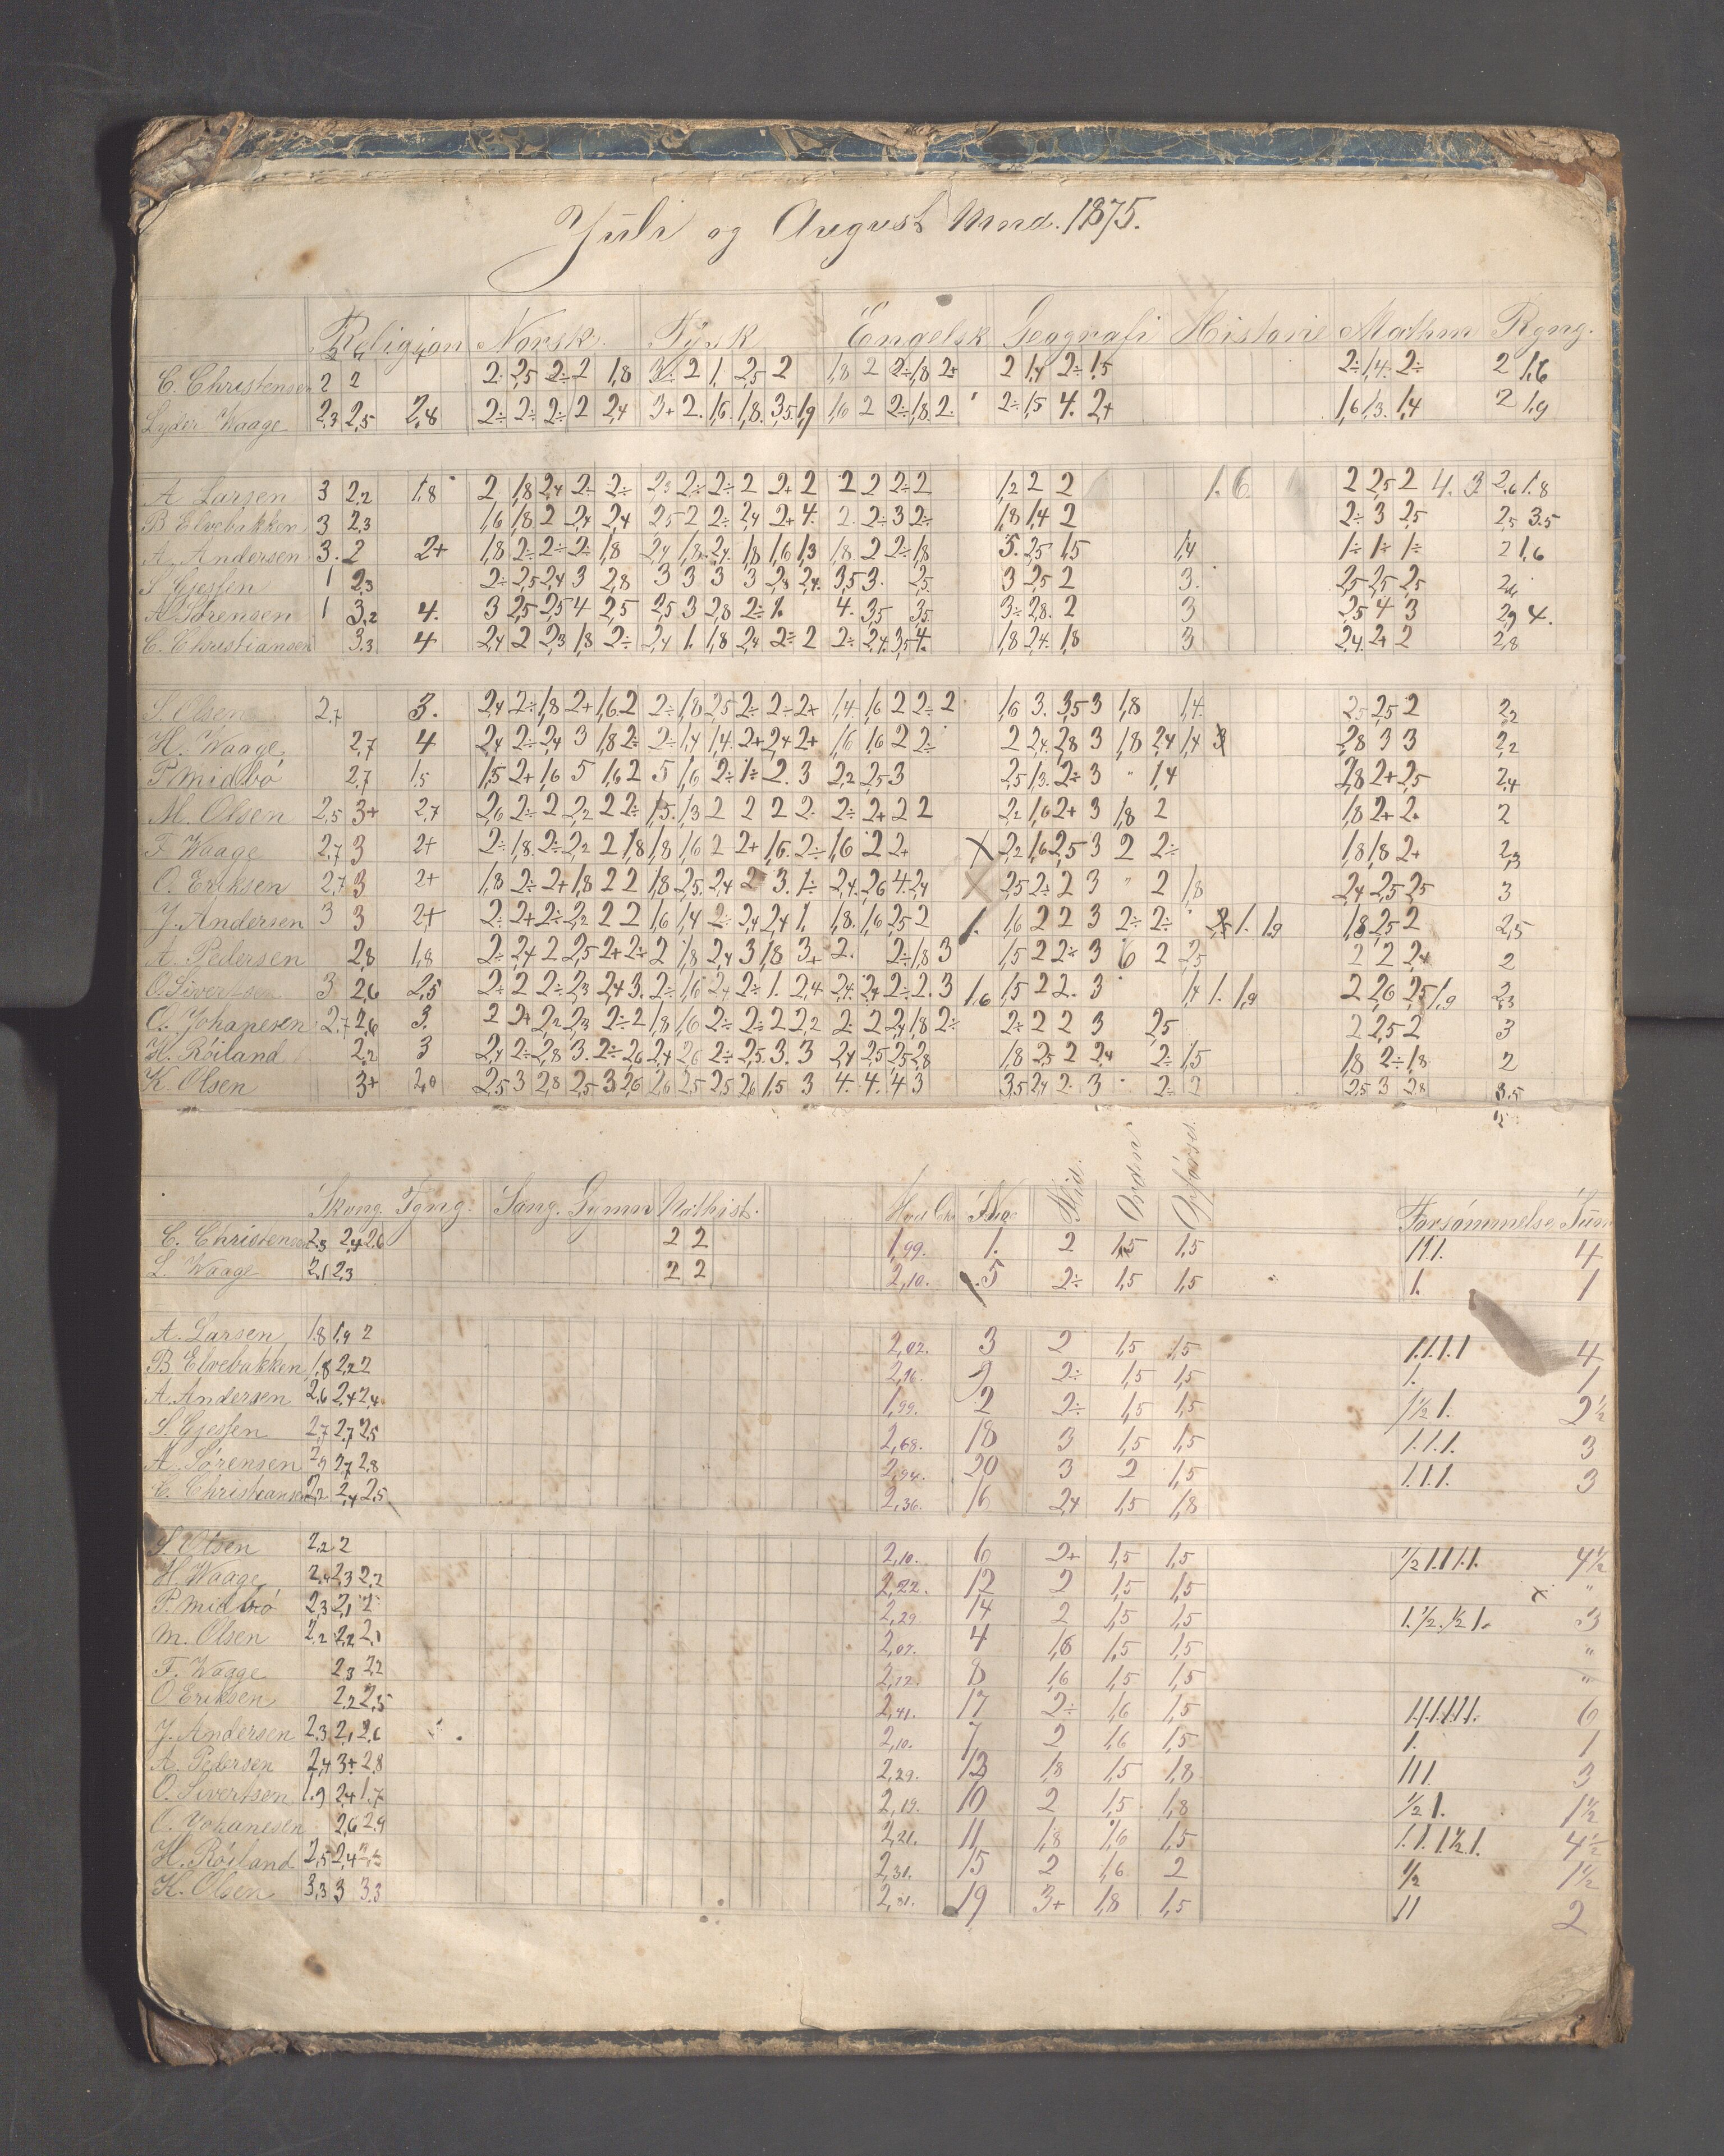 Juli og August Mnd. 1875.
Religion Norsk. Tysk Engelsk Geografi Historie Mathm Rgng.
C. Christensen 2 2 2÷ 2,5 2÷ 2 1,8 2 1, 2,5 2 1,8 2 2÷ 1,8 2+ 2 1,4 2÷ 1,5 2÷ 1,4 2÷ 2 1,6
Lyder Waage 2,3 2,5 2,8 2÷ 2÷ 2÷ 2 2,4 3+ 2. 1,6. 1,8. 3,5 1,9 1,6 2 2÷ 1,8. 2÷ 2÷ 1,5 4. 2+ 1,6 1,3. 1,4 2 1,9
A Larsen 3 2,2 1,8 2 1,8 2,4 2÷ 2÷ 2,3 2÷ 2÷ 2 2+ 2 2 2 2÷ 2 1,2 2 2 1.6. 2 2,5 2 4. 3 2,6 1.8
B Elvebakken 3 2,3 1,6 1,8 2 2,4 2,4 2,5 2 2÷ 2,4 2+ 4. 2. 2÷ 3 2÷ 1,8 1,4 2 2÷ 3 2,5 2,5 3.5
A. Andersen 3. 2 2+ 1,8 2÷ 2÷ 2÷ 1,8 2,4 1,8 2,4. 1,8 1,6 1,3 1,8. 2 2÷ 1,8 5. 2,5 1,5 1,4 1÷ 1÷ 1÷ 2 1,6
S Gjessen 1 2,3 2÷ 2,5 2,4 3 2,8 3 3 3 3 2,8 2,4. 3,5 3. 2,5. 3 2,5 2 3. 2,5 2,5 2,5
A Sørensen 1 3,2 4. 3 2,5 2,5 4 2,5 2,5 3 2,8 2÷ 1. 4. 3,5 3,5 3÷ 2,8. 2 3 2,5 4 3 2,9 4.
C. Christiansen 3,3 4 2,4 2 2,3 1,8 2÷ 2,4 1. 1,8 2,4 2÷ 2 2÷ 2,4. 3,5 4. 1,8 2,4. 1,8 3 2,4 2+ 2 2,8
S. Olsen 2,7 3. 2,4 2÷ 1,8 2+ 1,6. 2 2÷ 1,8 2,5 2÷ 2÷ 2+ 1,4. 1,6 2 2÷ 2 1,6 3. 3,5 3 1,8 1,4. 2,5 2,5 2 2,2
H. Waage 2,7 4 2,4 2÷ 2,4 3 1,8 2÷ 2÷ 1,4 1,4. 2+ 2,4 2+ 1,6 1,6 2 2÷ 2 2,4. 2,8 3 1,8 2,4 1,4 2,8 3 3 2,2
P Midbö 2,7 1,5 1,5 2+ 1,6 5 1,6 2 5 1,6 2÷ 1÷ 2. 3 2,2 2,5 3 2,5 1,3. 2÷ 3 " 1,4 2,8 2+ 2,5 2,4
M. Olsen 2,5 3+ 2,7 2,6 2÷ 2 2,2 2 2÷ 1,5. 1,3 2 2 2 2. 2÷ 2+ 2 2 2,2 1,6 2+ 3 1,8 2 1,8 2+ 2. 2
F Waage 2,7 3 2+ 2÷ 1,8. 2÷ 2,2 2 1,8 1,8 1,6 2 2+ 1,6. 2÷ 1,6 2 2+ X 2,2 1,6 2,5 3 2 2÷ 1,8 1,8 2+ 2,3
O. Eriksen 2,7 3 2+ 1,8 2÷ 2+ 1,8 2 2 1,8 2,5. 2,4 2 3. 1÷ 2,4. 2,6 4. 2,4 X 2,5 2÷ 2 3 " 2 1,8 2,4 2,5 2,5 3
J. Andersen 3 3 2+ 2÷ 2+ 2÷ 2,2 2 2 1,6 1,4 2÷ 2,4 2,4 1. 1,8. 1,6 2,5 2 1. 1,6 2 2 3 2÷ 2÷ 1. 1,9 1,8 2,5 2 2,5
A. Pedersen 2,8 1,8 2÷ 2,4 2 2,5 2+ 2÷ 2 1,8 2,4 3 1,8 3+ 2. 2÷ 1,8 3 1,5 2 2÷ 3 6 2 2,5 2 2 2,4 2
O. Sivertsen 3 2,6 2,5 2÷ 2 2÷ 2,3 2,4 3. 2÷ 1,6 2,4 2÷ 1. 2,4 2,4. 2,4 2÷ 2. 3 1,6 1,5 2 2. 3 1,4 1. 1,9 2 2,6 2,5 1,9 2,3
O. Johanesen 2,7 2,6 3. 2 2+ 2,2 2,3 2÷ 2 1,8 1,6 2÷ 2÷ 2 2,2 2÷ 2 2,4 1,8 2÷ 2÷ 2 2 3 2,5 2 2,5 2 3
H. Röiland 2,2 3 2,4 2÷ 2,8 3. 2÷ 2,6 2,4 2,6 2÷ 2,5. 3. 3 2,4 2,5 2,5 2,8 1,8 2,5 2 2,4 2÷ 1,5 1,8 2÷ 1,8 2
K. Olsen 3+ 2,0 2,5 3 2,8 2,5 3 2,6 2,6 2,5 2,5 2,6 1,5 3 4. 4. 4 3 3,5 2,4 2 3 2÷ 2 2,5 3 2,8 3.5
Skvng. Tgng. Sang. Gymn Nathist. Hvd Ch No Flid. Orden Opförsel. Forsömmelse Sum
C. Christensen 2,3 2,4 2,6 2 2 1,99. 1. 2 1,5 1,5 111. 4
L. Waage 2,1 2,3 2 2 2,10. 5 2÷ 1,5 1,5 1. 1
A. Larsen 1.8 1,9 2 2,02. 3 2 1,5 1,5 1.1.1.1 4
B Elvebakken 1,8 2,2 2 2,16. 9 2÷ 1,5 1,5 1. 1
A. Andersen 2,6 2,4 2,4 1,99. 2 2÷ 1,5 1,5 1½ 1. 2½
S. Gjessen 2,7 2,7 2,5 2,68. 18 3 1,5 1,5 1.1.1. 3
A Sørensen 2,9 2,7 2,8 2,94. 20 3 2 1,5 1.1.1. 3
C. Christiansen 2,2 2,4 2,5 2,36. 16 2,4 1,5 1,8
S Olsen 2,2 2 2,10. 6 2+ 1,5 1,5 ½ 1.1 1.1. 4½
H Waage 2,4 2,3 2,2 2,22. 12 2 1,5 1,5 "
P. Midbö 2,3 2,1 2 2,29. 14 2 1,5 1,5 1.½.½ 1. 3
M. Olsen 2,2 2,2 2,1 2,07. 4 1,6 1,5 1,5 "
F. Waage 2,3 2,2 2,12. 8 1,6 1,5 1,5 "
O Eriksen 2,2 2,5 2,41. 17 2÷ 1,6 1,5 1.1.1.1.1.1. 6
J. Andersen 2,3 2,1 2,6 2,10. 7 2 1,6 1,5 1. 1
A. Pedersen 2,4 3+ 2,8 2,29. 13 1,8 1,5 1,8 111. 3
O. Sivertsen 1.9 2,4 1.7 2,19. 10 2 1,5 1,8 ½ 1. 1½
O. Johanesen 2,6 2,9 2,21. 11 1,8 1,6 1,5 1.1. 1½ 1. 4½
H. Röiland 2,5 2,4 2,31. 15 2 1,6 2 ½ 1½
K. Olsen 3,3 3 3,3 2,81. 19 3+ 1,8 1,5 11 2